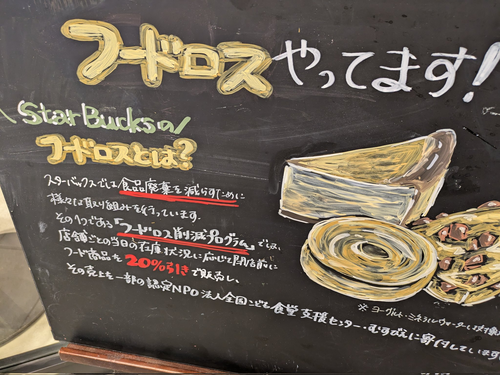 フードロスやってます!
StarBucksの
フードロスとは?
スターバックスでは食品廃棄を減らすために
様々な取り組みを行っています。
その1つである「フードロス削減プログラム」では、
店舗ごとの当日の在庫状況に応じて閉店前に
フード商品を20%引きで販売し、
その売上を一部の認定NPO法人全国こども食堂支援センター・むすびえに寄付しています
※ヨーグルト・ミネラルウォーターは対象